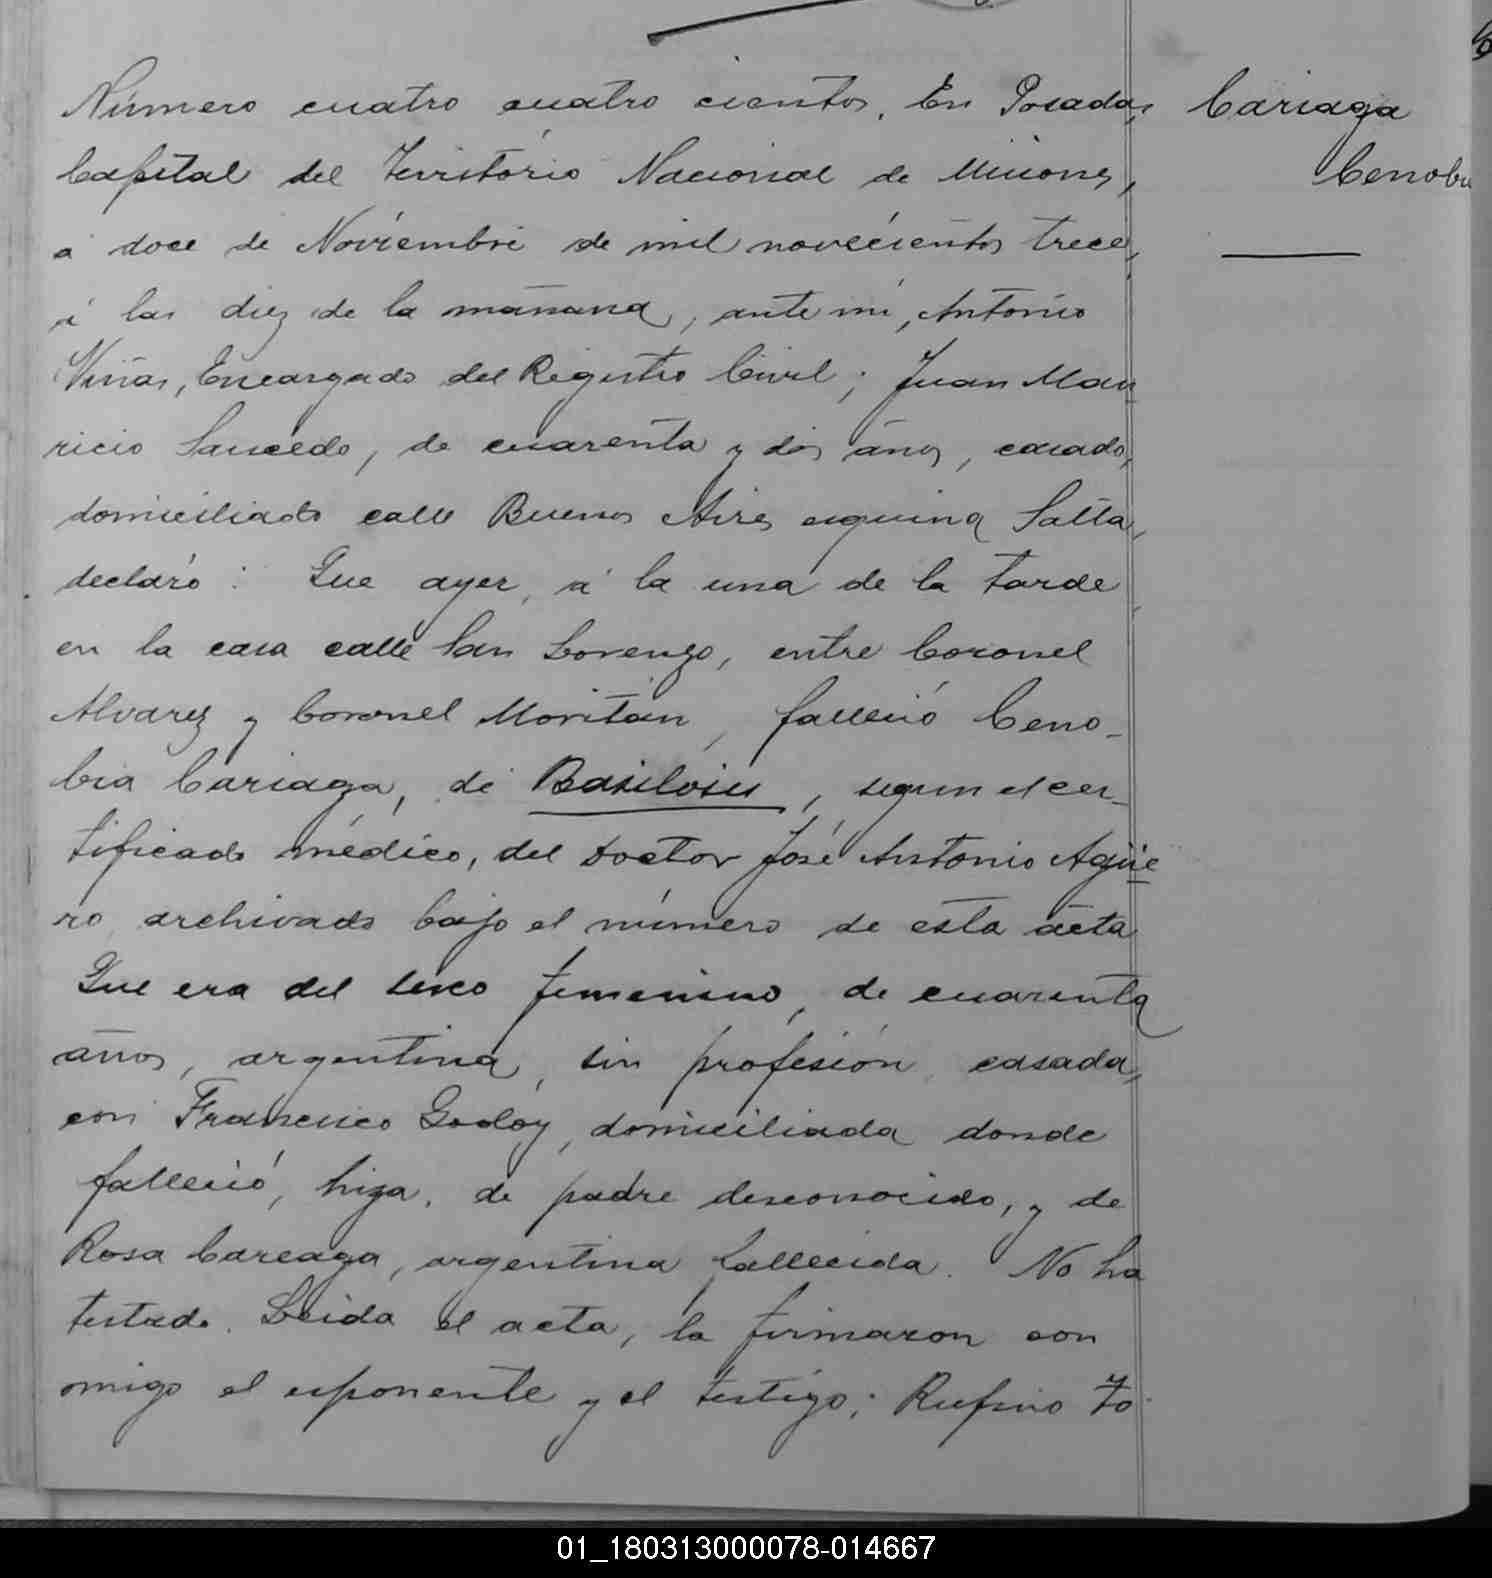 Número cuatro cuatro cientos. En Posadas,
Capital del Territorio Nacional de Misiones,
á doce de Noviembre de mil novecientos trece,
á las diez de la mañana, ante mi, Antonio
Viñas, Encargado del Registro Civil; Juan Mau
ricio Saucedo, de cuarenta y dos años, casado,
domiciliado calle Buenos Aires esquina Salta,
declaró: Que ayer, á la una de la tarde
en la casa calle San Lorenzo, entre Coronel
Alvarez y Coronel Moritán, falleció Ceno-
bia Cariaga, de Basilosis, segun el cer-
tificado médico, del Doctor José Antonio Agüe
ro archivado bajo el número de esta acta
Que era del sexo femenino, de cuarenta
años, argentina, sin profesión, casada,
con Francisco Godoy, domiciliada donde
falleció, hija, de padre desconocido, y de
Rosa Careaga, argentina fallecida. No ha
testado. Leida el acta, la firmaron con
omigo el esponente y el testigo; Rufino To
Cariaga
Cenobia
01_180313000078-014667